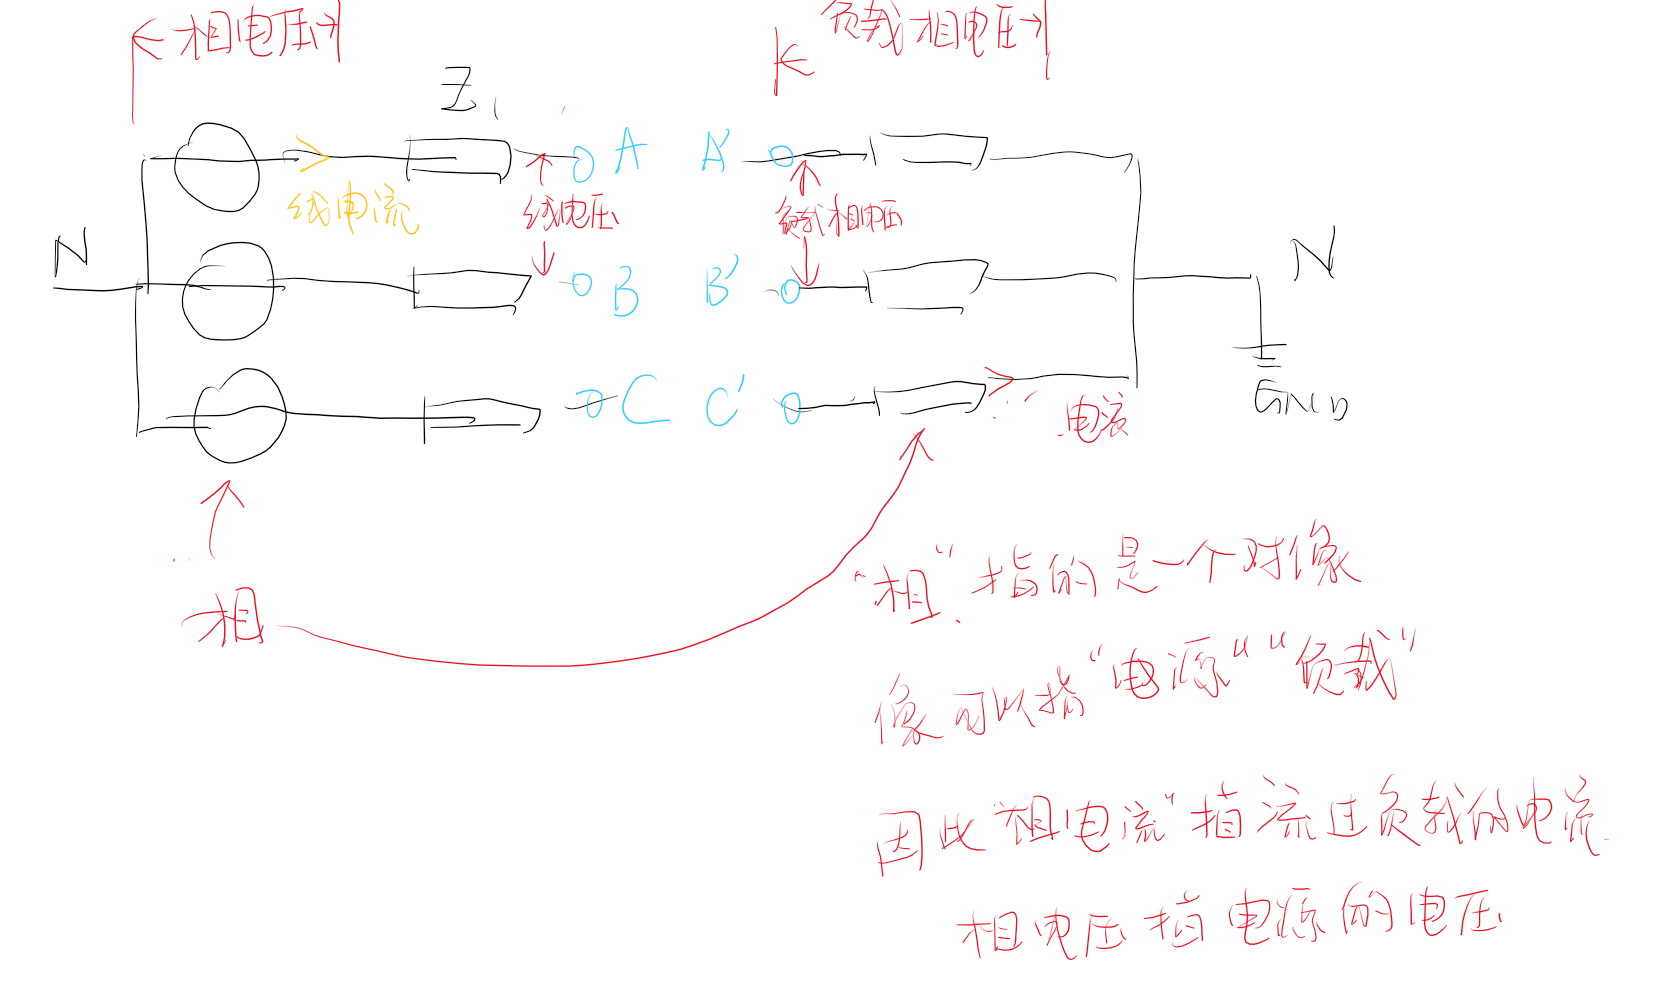 相电压
负载相电压
Z1
A A'
线电流
线电压
负载相电压
N
N
B B'
C C'
GND
电流
相
"相"指的是一个对像
像可以指"电源""负载"
因此"相电流"指流过负载的电流.
相电压指电源的电压